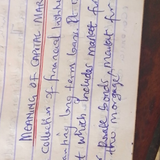 MEANING OF CAPITAL MAR
collection of financial instituti
making long term loans. It c
t which include market fo
r funds bonds, market for
the mortgage